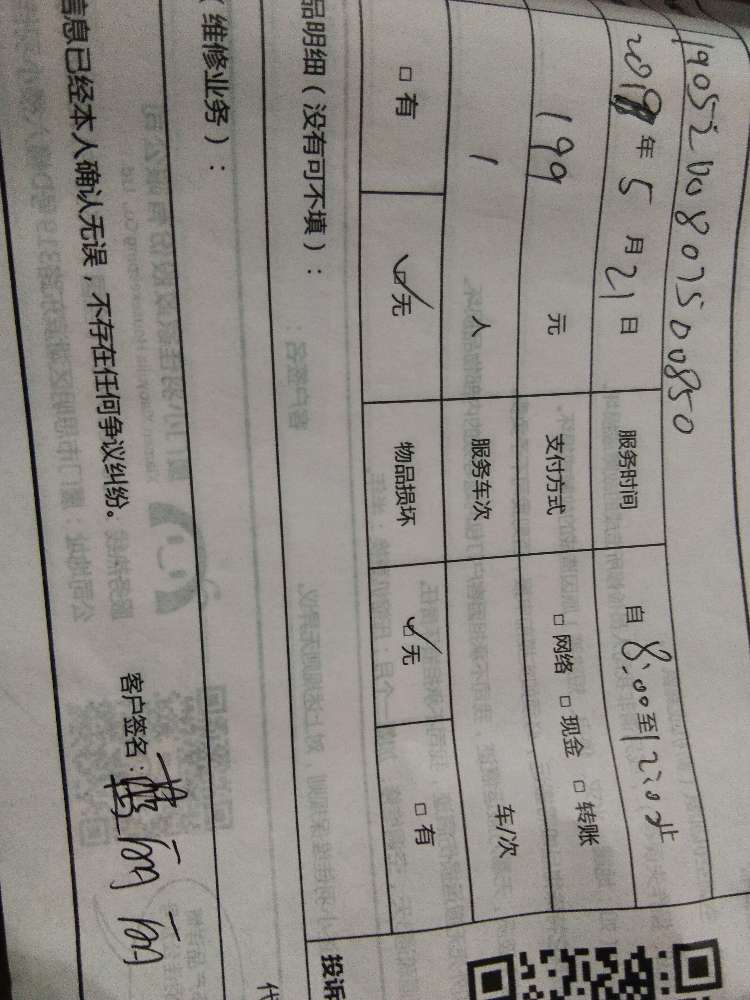 1905200807500850
2019年5月21日 服务时间 自8:00至12:00止
199 元 支付方式 □网络 □现金 □转账
1 人 服务车次 车/次
□有 □无 物品损坏 □无 □有
品明细（没有可不填）：
投诉
（维修业务）：
代
信息已经本人确认无误，不存在任何争议纠纷。 客户签名：